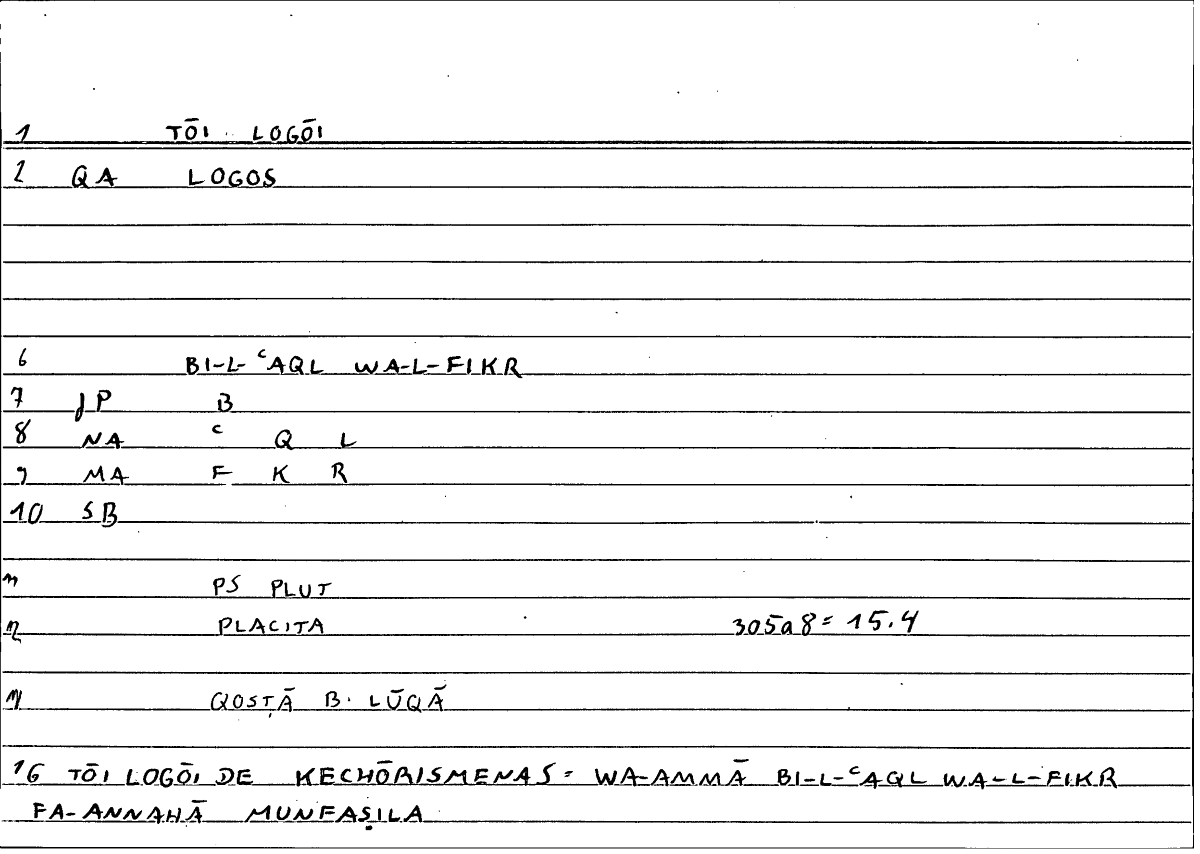 1 TŌI LOGŌI
2 QA LOGOS
6 BI-L-ᶜAQL WA-L-FIKR
7 JP B
8 NA ᶜ Q L
9 MA F K R
10 SB
11 PS PLUT
12 PLACITA 305a8 = 15.4
14 QOSṬĀ B. LŪQĀ
16 TŌI LOGŌI DE KECHŌRISMENAS = WA-AMMĀ BI-L-ᶜAQL WA-L-FIKR
FA-ANNAHĀ MUNFAṢILA